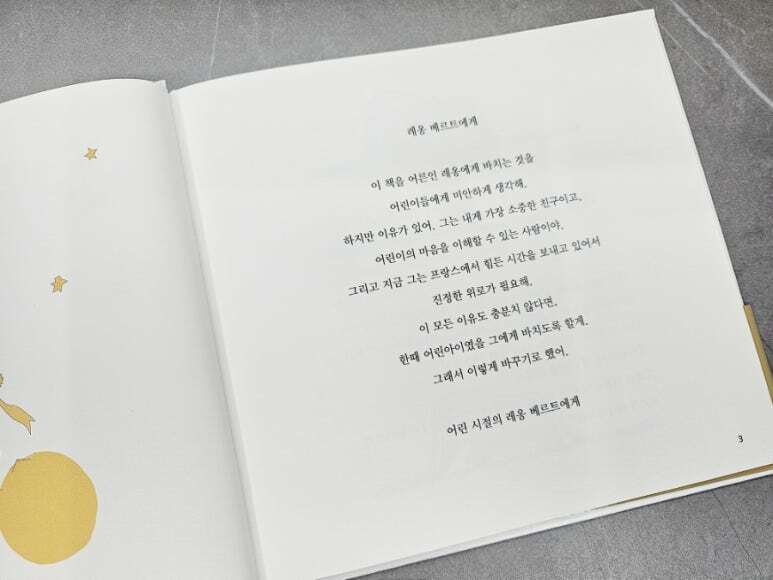 레옹 베르트에게
이 책을 어른인 레옹에게 바치는 것을
어린이들에게 미안하게 생각해.
하지만 이유가 있어. 그는 내게 가장 소중한 친구이고,
어린이의 마음을 이해할 수 있는 사람이야.
그리고 지금 그는 프랑스에서 힘든 시간을 보내고 있어서
진정한 위로가 필요해.
이 모든 이유도 충분치 않다면,
한때 어린아이였을 그에게 바치도록 할게.
그래서 이렇게 바꾸기로 했어.
어린 시절의 레옹 베르트에게
3